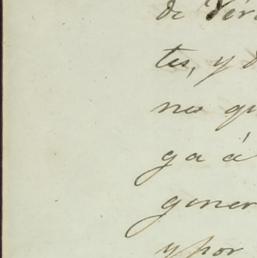 de Ver
tes, y d
nes qu
ga á
gener
y por